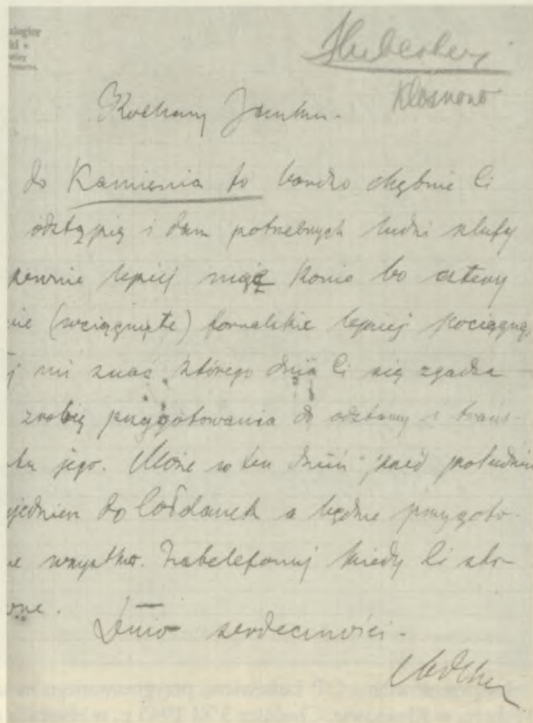 Kłosnowo
Kochany Janku.
do Kamienia to bardzo chętnie Ci
odstąpię i dam potrzebnych ludzi służy
pewnie lepiej mieć konie bo cztery
nie (wciągnięte) fornalskie lepiej pociągną
j mi znać którego dnia Ci się zgadza
zrobię przygotowania do odstawy i trans-
tu jego. Może w ten dzień przed południem
yjedziesz do a będzie przygoto-
ne wszystko. Zatelefonuj kiedy Ci sto-
wne.
serdeczności.